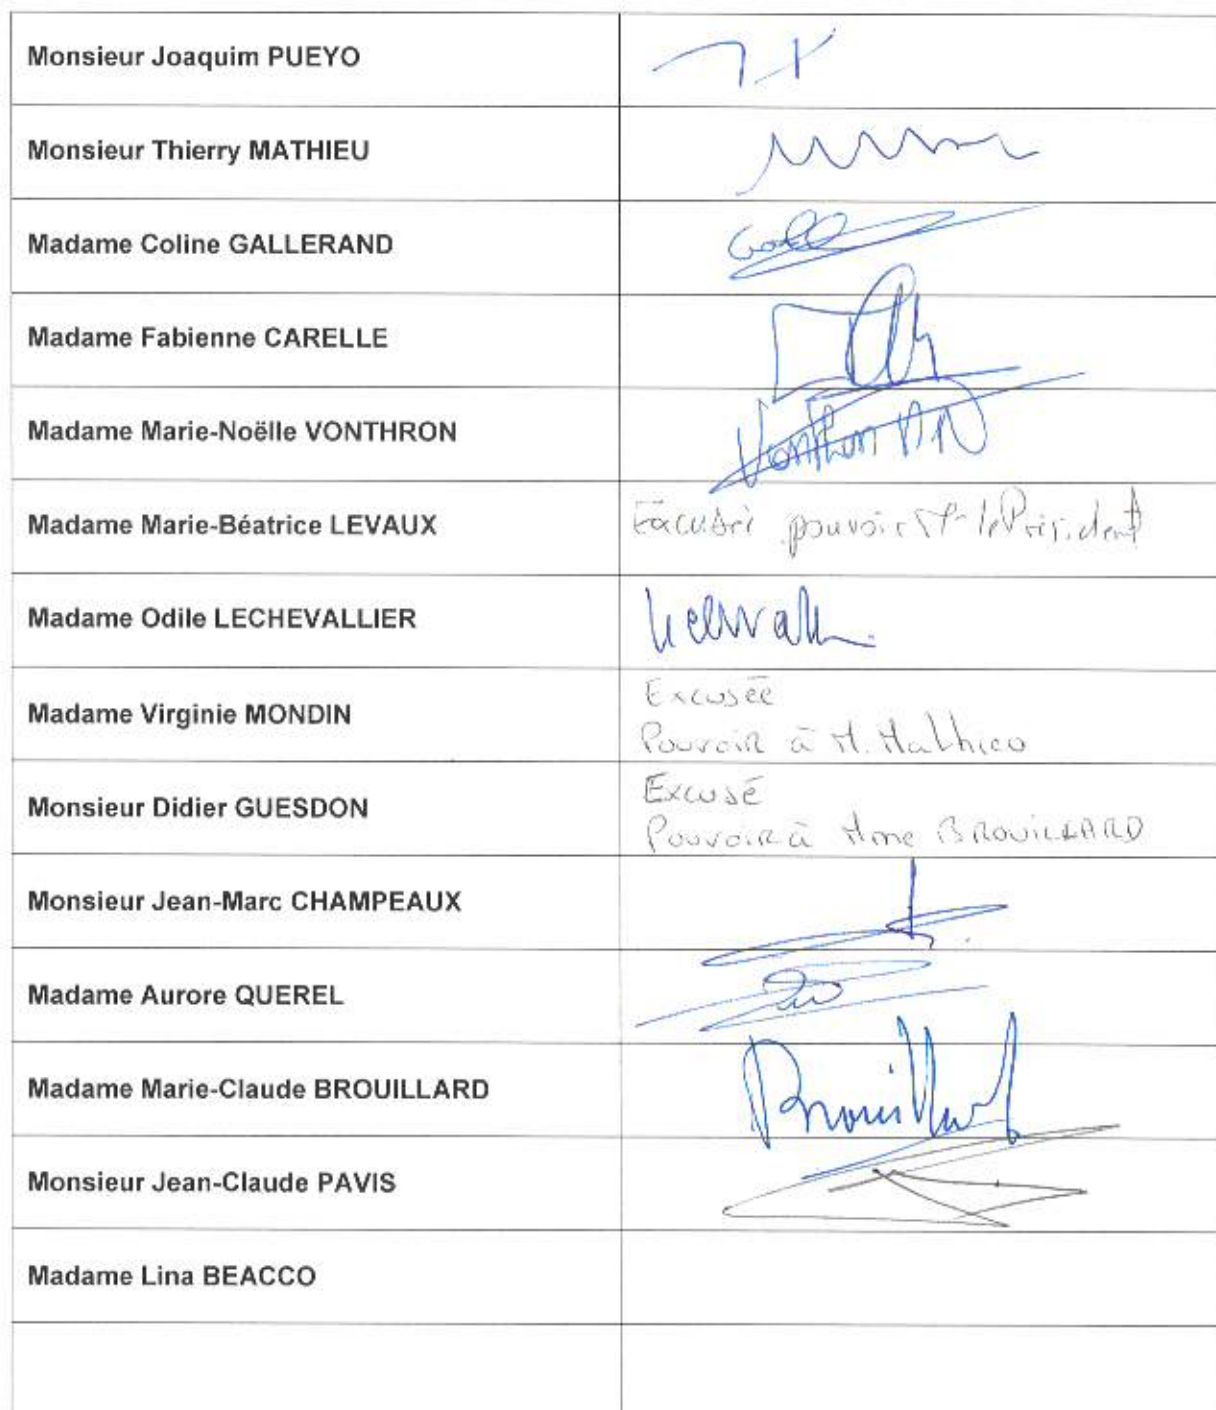 Monsieur Joaquim PUEYO
Monsieur Thierry MATHIEU
Madame Coline GALLERAND
Madame Fabienne CARELLE
Madame Marie-Noëlle VONTHRON
Vonthron MN
Madame Marie-Béatrice LEVAUX
Excusée pouvoir Mr le Président
Madame Odile LECHEVALLIER
Madame Virginie MONDIN
Excusée
Pouvoir à M. Mathieu
Monsieur Didier GUESDON
Excusé
Pouvoir à Mme BROUILLARD
Monsieur Jean-Marc CHAMPEAUX
Madame Aurore QUEREL
Madame Marie-Claude BROUILLARD
Brouillard
Monsieur Jean-Claude PAVIS
Madame Lina BEACCO